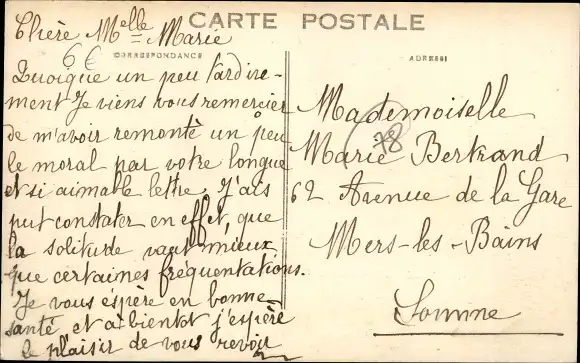 CARTE POSTALE
Chère Melle Marie
6€
CORRESPONDANCE
Quoique un peu tardive-
ment Je viens vous remercier
de m'avoir remonté un peu
le moral par votre longue
et si aimable lettre. J'ais
put constater en effet, que
la solitude vaut mieux
que certaines fréquentations.
Je vous espère en bonne
santé et a bientot j'espère
le plaisir de vous revoir
ADRESSE
Mademoiselle
78
Marie Bertrand
62 Avenue de la Gare
Mers-les-Bains
Somme